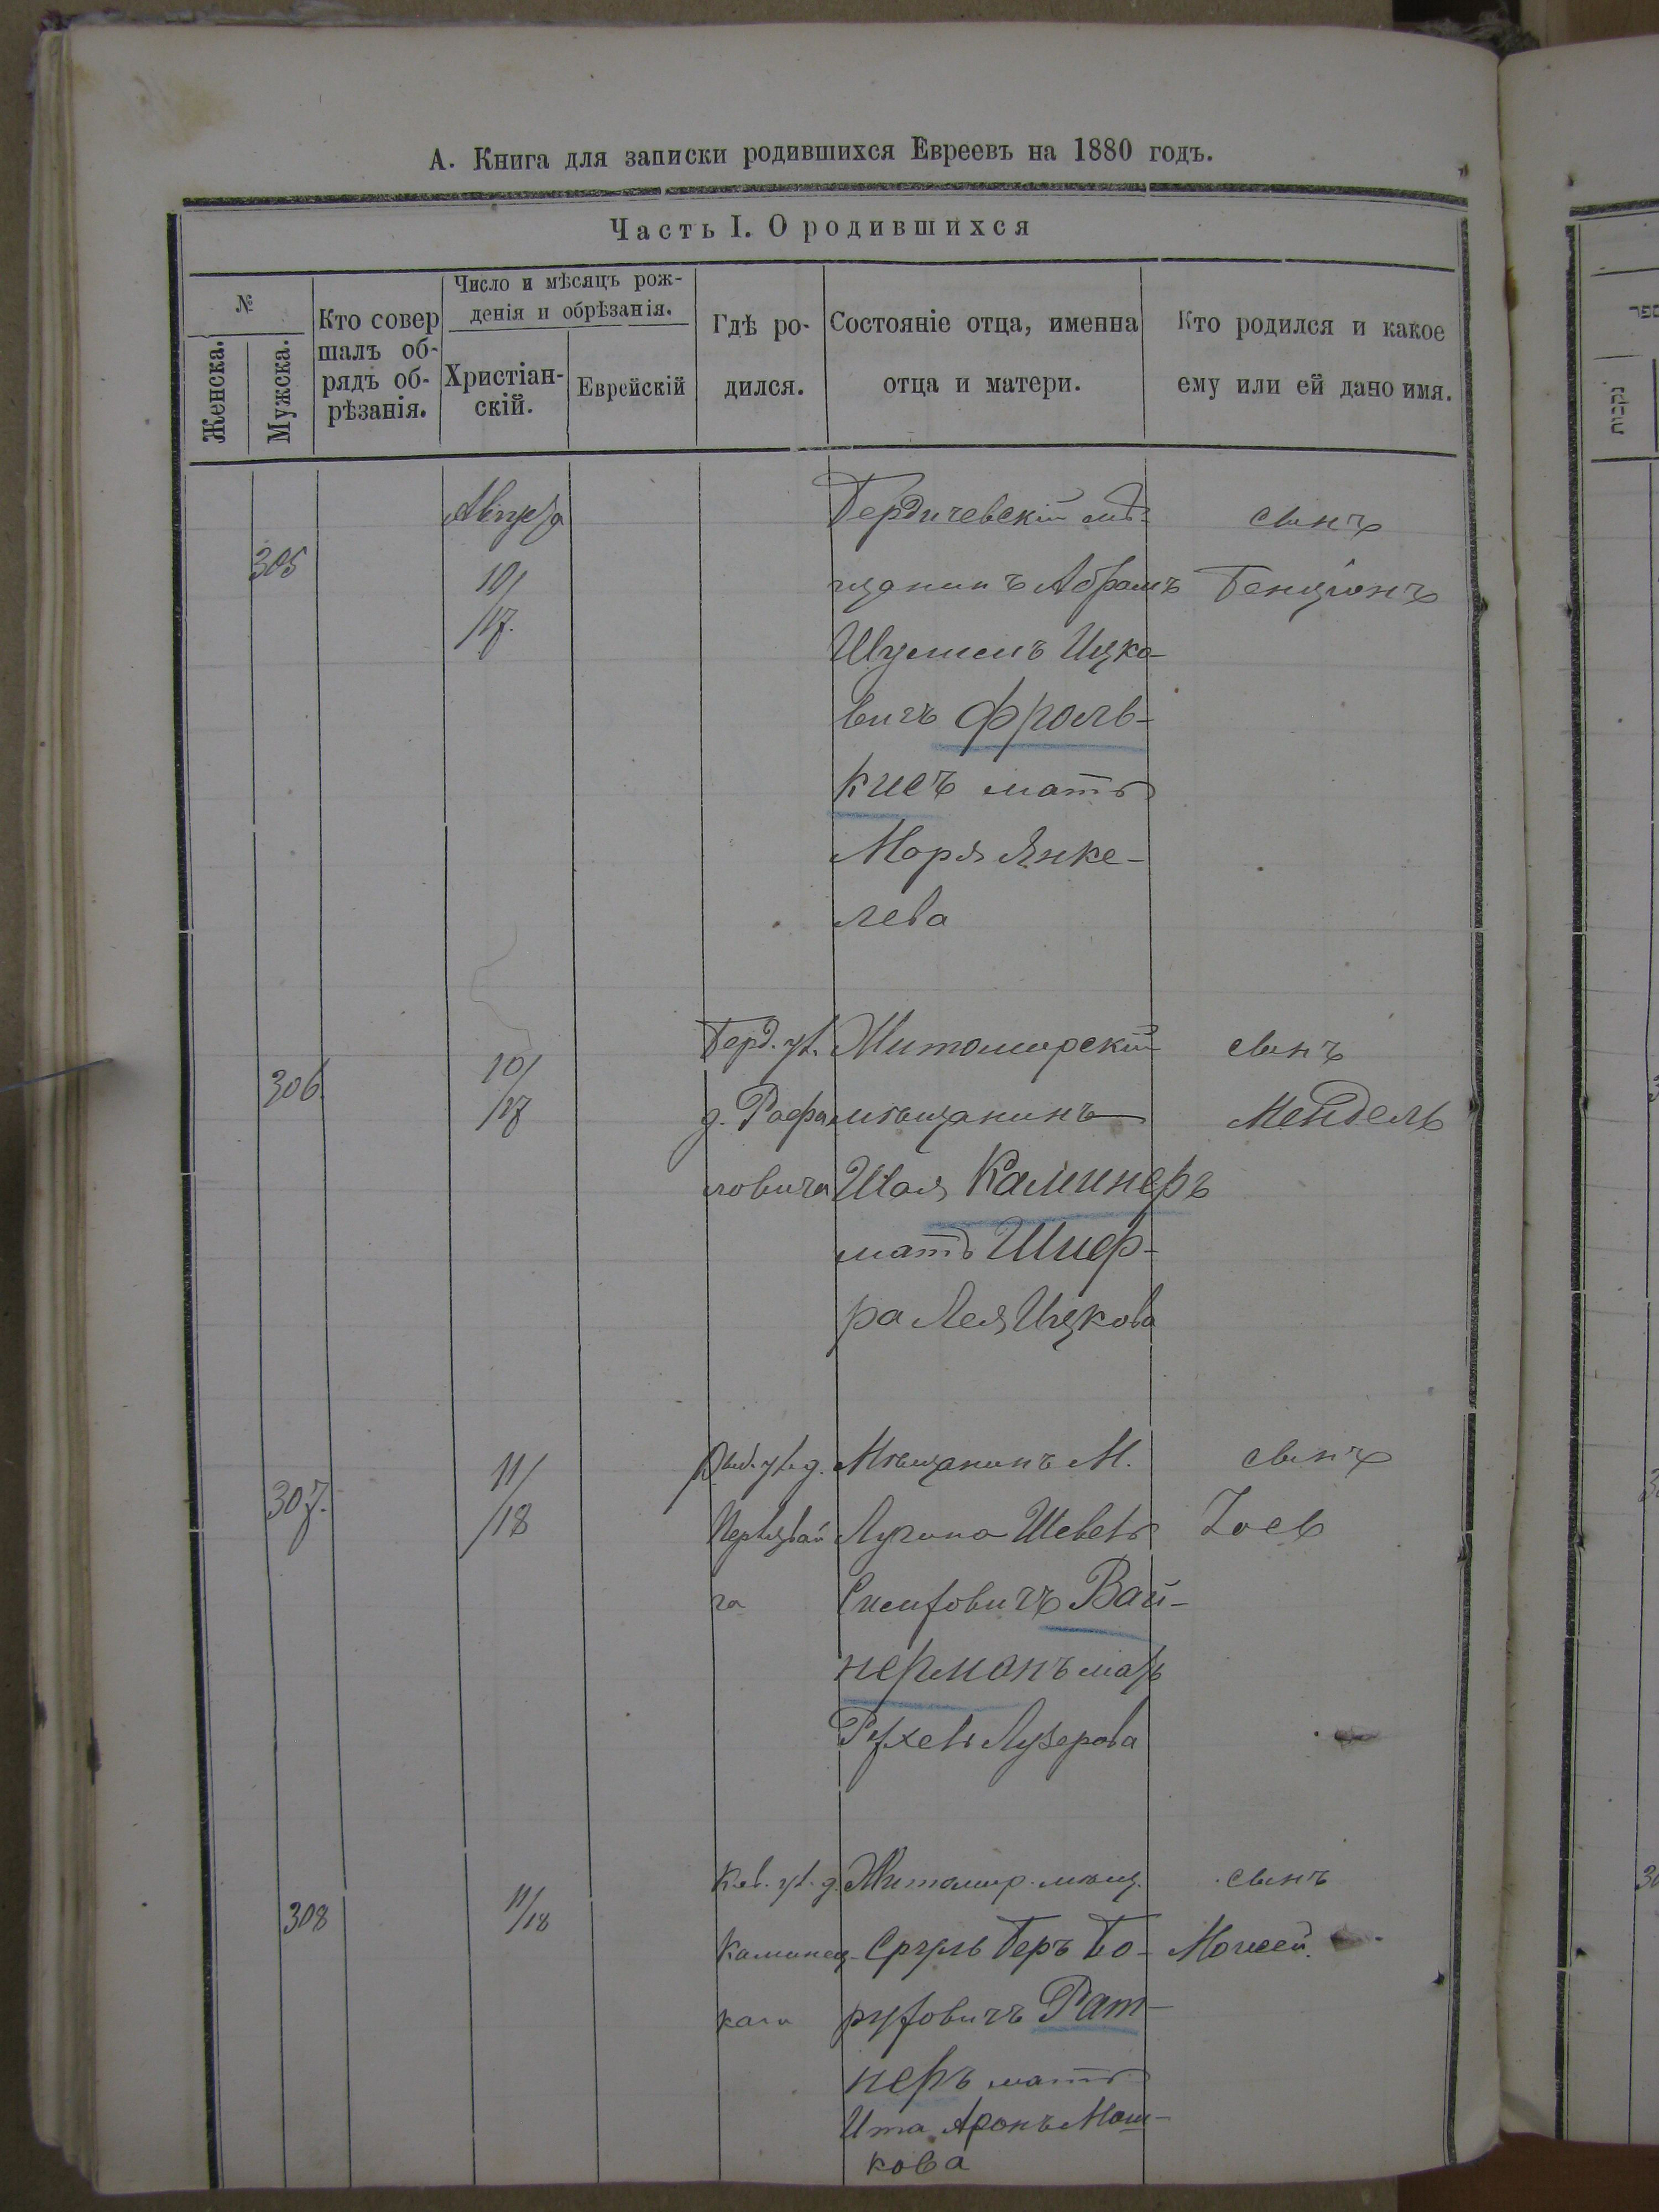 А. Книга для записки родившихся Евреевъ на 1880 годъ.
Часть I. О родившихся
№
Женска.
Мужска.
Кто совер
шалъ об-
рядъ об-
рѣзанія.
Число и мѣсяцъ рож-
денія и обрѣзанія.
Христіан-
скій.
Еврейскій
Гдѣ ро-
дился.
Состояніе отца, именна
отца и матери.
Кто родился и какое
ему или ей дано имя.
305
Августа
10/
/17.
Бердичевскій мѣ-
щанинъ Абрамъ
Шулимъ Ицко-
вичъ Фроль-
кисъ мать
Маря Янке-
лева
сынъ
Бенціонъ
306.
10/
/17
Берд. уѣ.
д.
ловича
Житомирскій
мѣщанинъ
Шая Каминеръ
мать Шиф-
ра Лея Ицкова
сынъ
Мендель
307.
11/
/18
уѣ. д.
га
Мѣщанинъ М.
Лугина
Вай-
нерманъ мать
Лузерова
сынъ
308
11/18
уѣ. д.
Каминец-
каго
Житомир. мѣщ.
Сруль Беръ Бо-
руховичъ Рат-
неръ мать
Ита Аронъ Мош-
кова
сынъ
Моисей.
ספר
נקבות